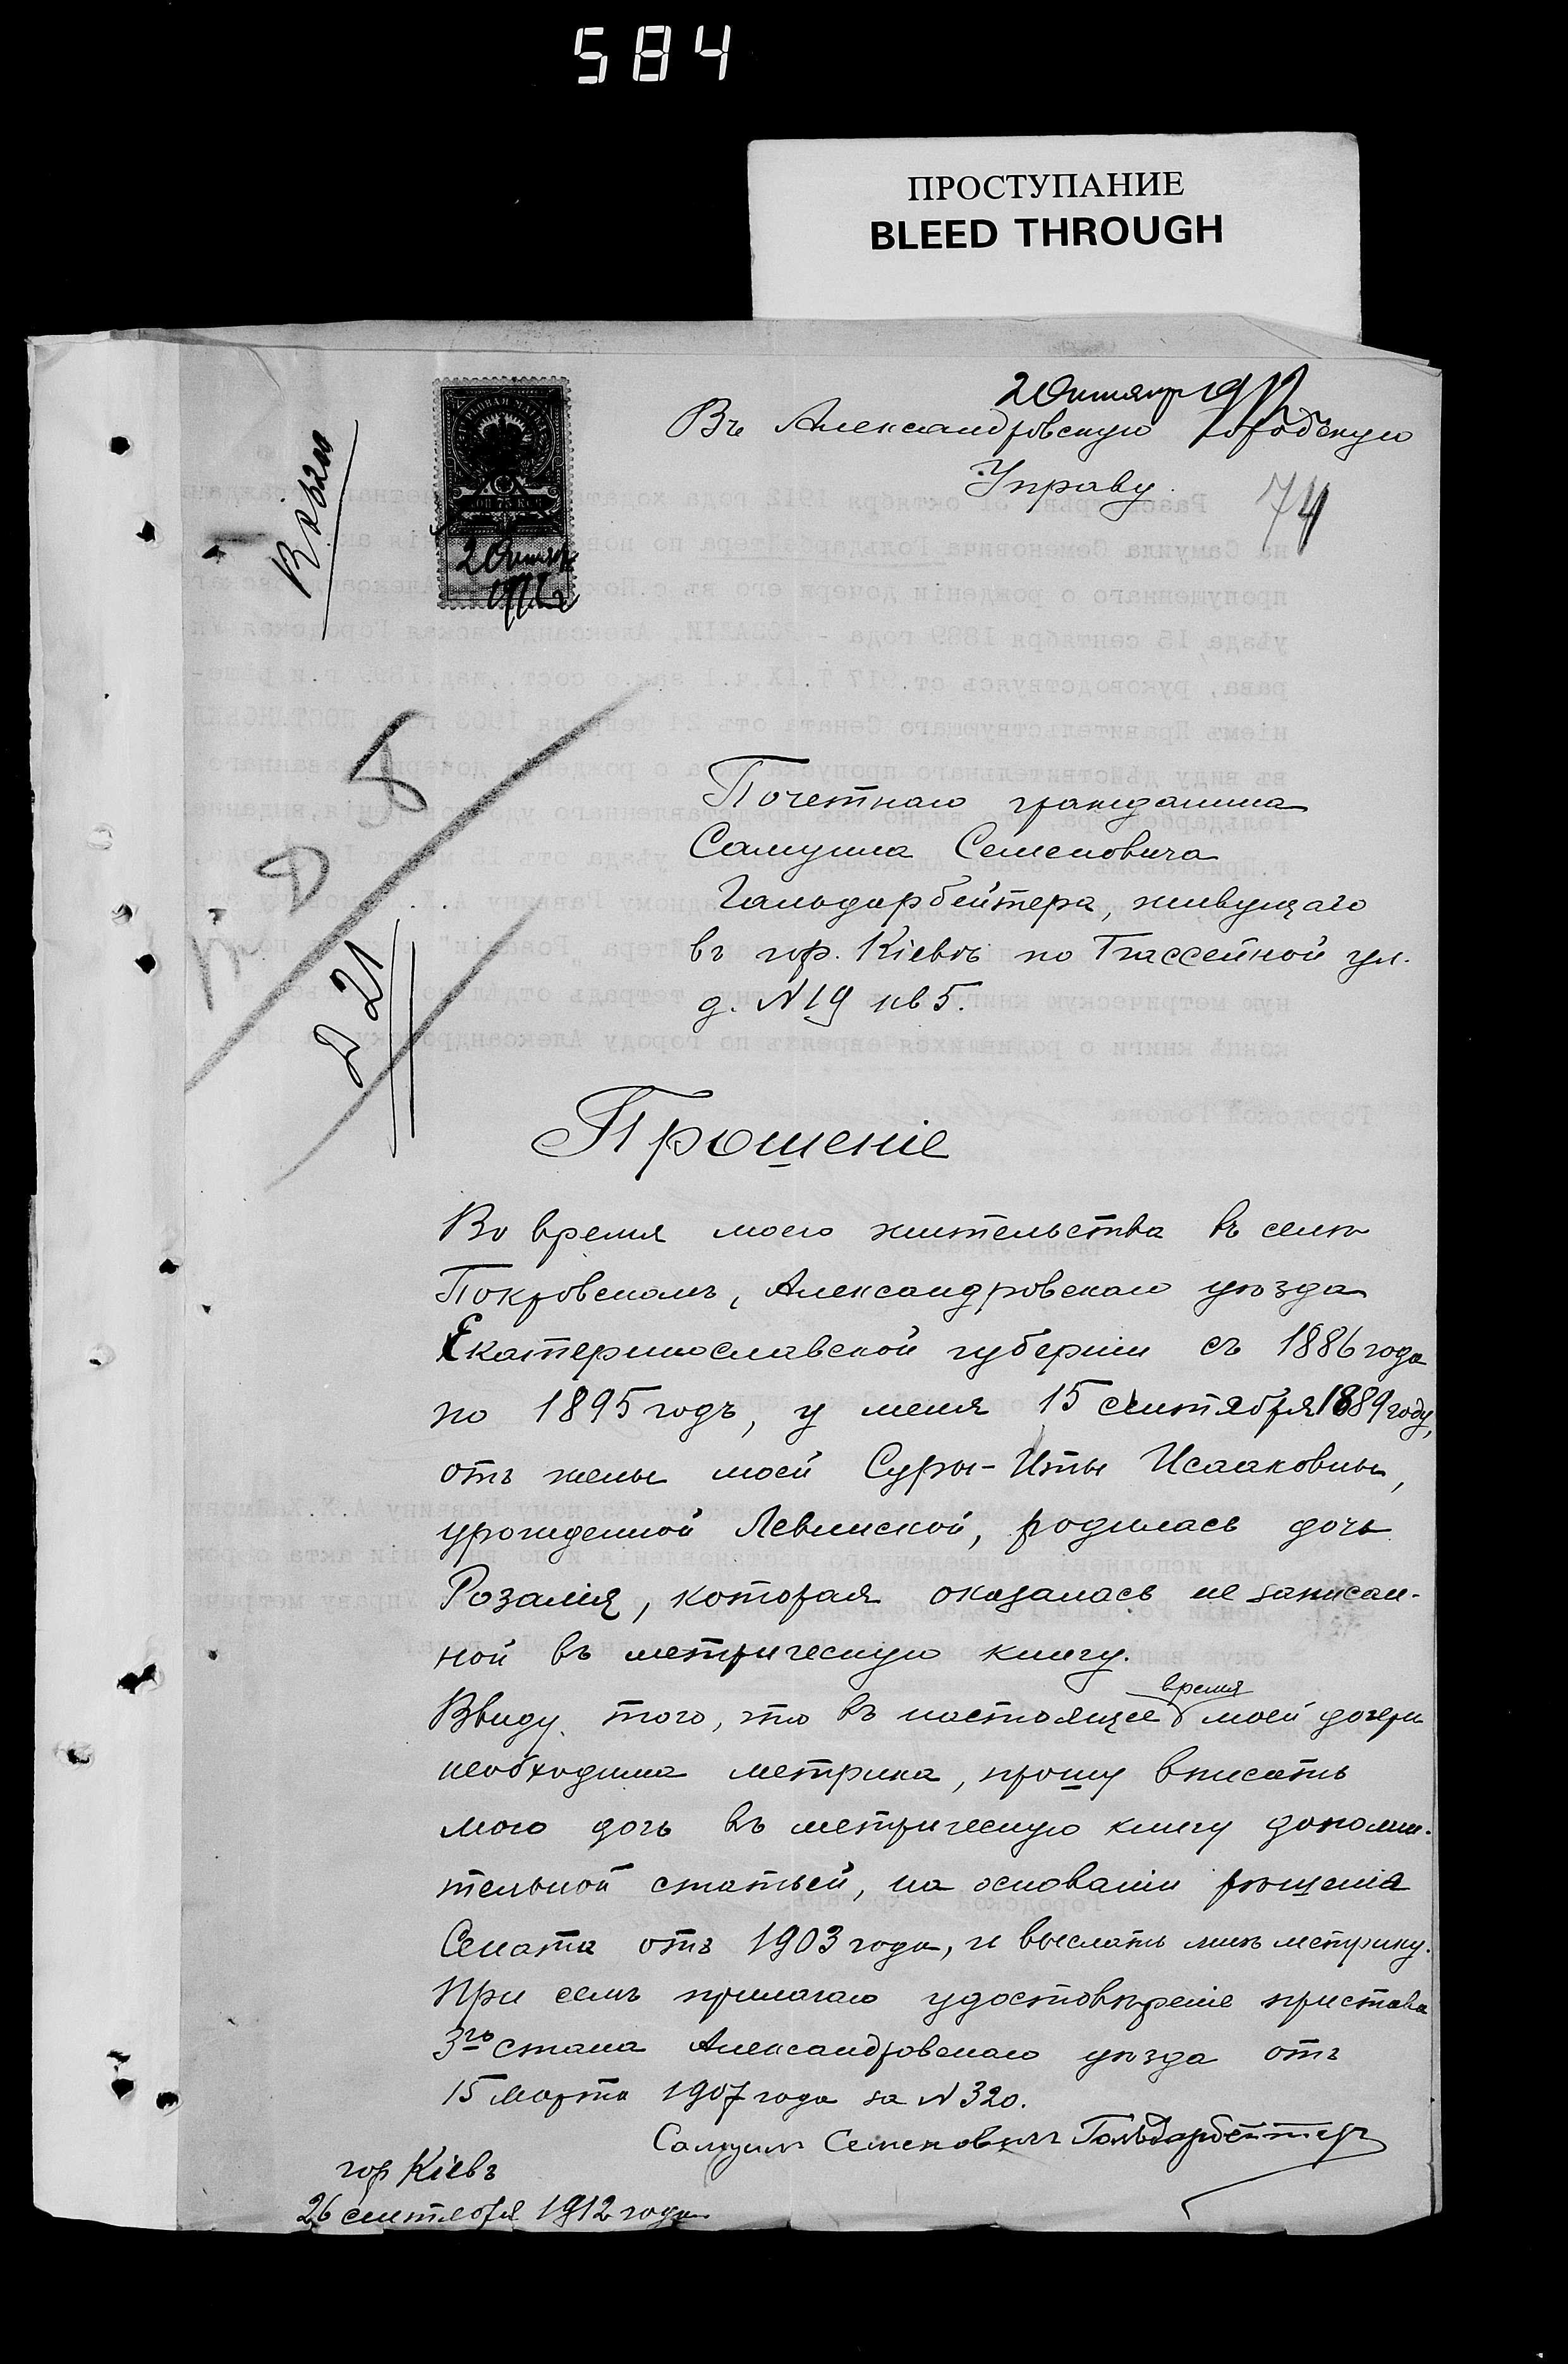 584
ПРОСТУПАНИЕ
BLEED THROUGH
2 Октября 1912
Въ Александровскую Городскую
Управу.
74
75 коп
2 Октяб
1912
Почетнаго гражданина
Самуила Семеновича
Гольдарбейтера, живущаго
въ гор. Кіевѣ по Бассейной ул.
д. N 19 кв 5.
Д 21
Прошеніе
Во время моего жительства въ селѣ
Покровскомъ, Александровскаго уѣзда
Екатеринославской губерніи съ 1886 года
по 1895 годъ, у меня 15 сентября 1889 году,
отъ жены моей Суры-Иты Исааковны,
урожденной Левинской, родилась дочь
Розалія, которая оказалась не записан-
ной въ метрическую книгу.
Ввиду того, что въ настоящее время моей дочери
необходима метрика, прошу вписать
мою дочь въ метрическую книгу дополни-
тельной статьей, на основаніи рѣшенія
Сената отъ 1903 года, и выслать мнѣ метрику.
При семъ прилагаю удостовѣреніе пристава
3го стана Александровскаго уѣзда отъ
15 марта 1907 года за N 320.
Самуилъ Семеновичъ Гольдарбейтеръ
гор Кіевъ
26 сентября 1912 года